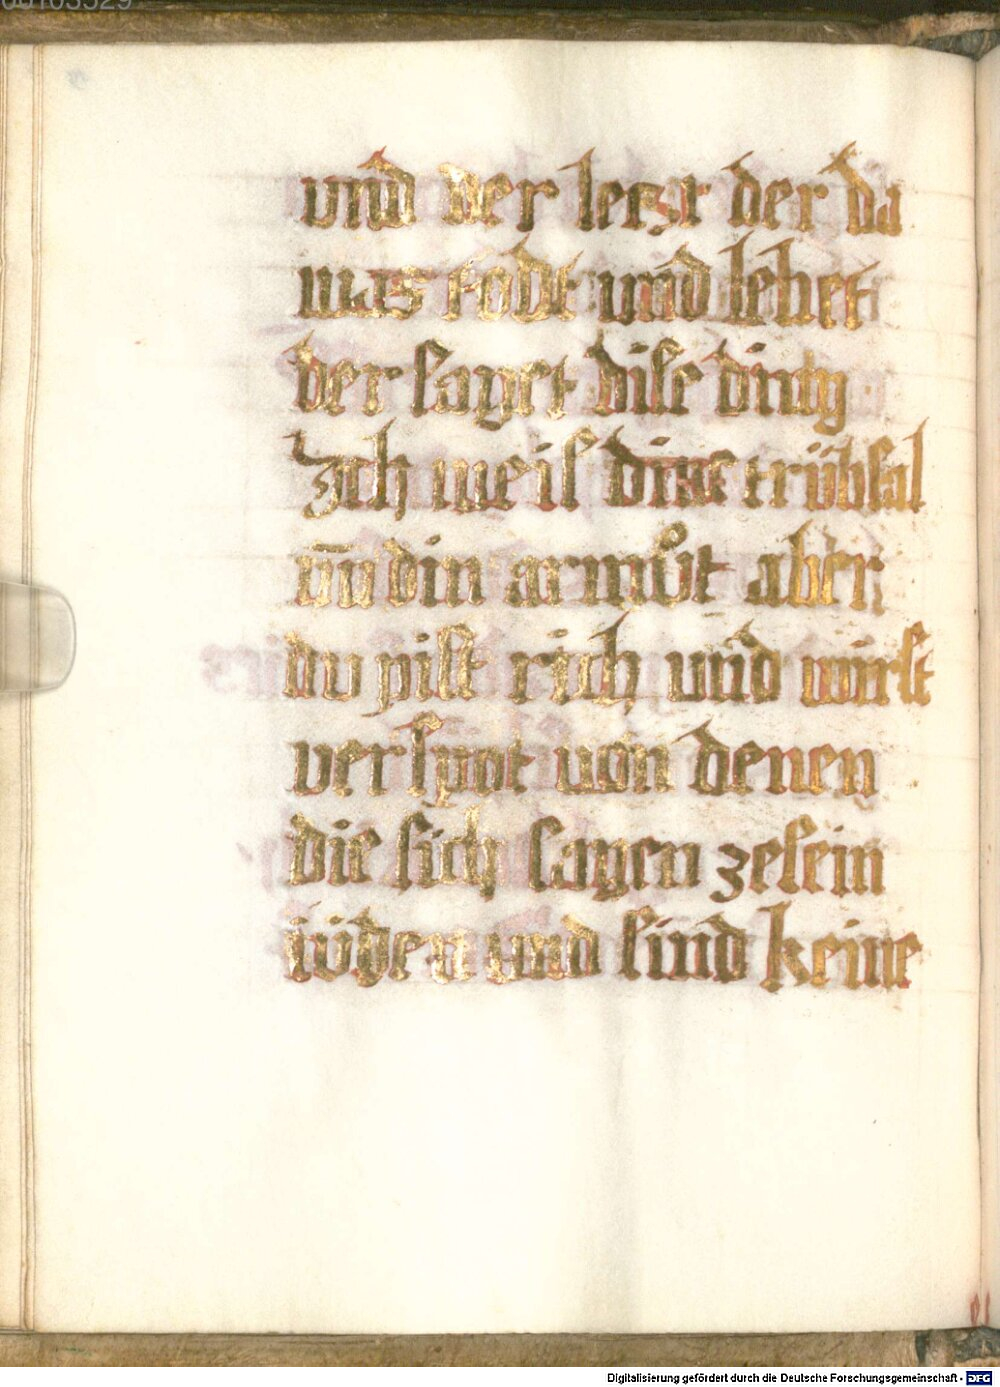 und der letzt der da
was todt und lebet
der saget dise ding
Ich weis dine trübsal
uñ din armuͦt aber
du pist rich und wirst
verspot von denen
die sich sagen ze sein
iüden und sind keine
Digitalisierung gefördert durch die Deutsche Forschungsgemeinschaft - DFG